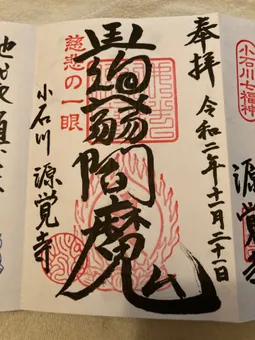 奉拝
令和二年十一月二十日
蒟蒻閻魔
慈悲の一眼
小石川 源覚寺
小石川七福神
源覚寺